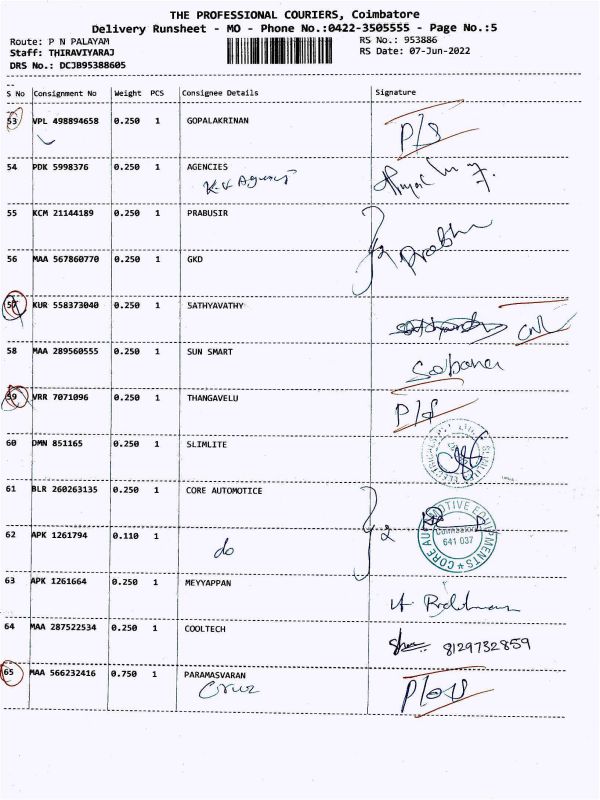 THE PROFESSIONAL COURIERS, Coimbatore
Delivery Runsheet - MO - Phone No.:0422-3505555 - Page No.:5
Route: P N PALAYAM RS No.: 953886
Staff: THIRAVIYARAJ RS Date: 07-Jun-2022
DRS No.: DCJB95388605
S No Consignment No Weight PCS Consignee Details Signature
53 VPL 498894658 0.250 1 GOPALAKRINAN
54 PDK 5998376 0.250 1 AGENCIES
55 KCM 21144189 0.250 1 PRABUSIR
Prabhu
56 MAA 567860770 0.250 1 GKD
57 KUR 558373040 0.250 1 SATHYAVATHY
58 MAA 289560555 0.250 1 SUN SMART
59 VRR 7071096 0.250 1 THANGAVELU
60 DMN 851165 0.250 1 SLIMLITE
61 BLR 260263135 0.250 1 CORE AUTOMOTICE
62 APK 1261794 0.110 1
do
CORE AUTOMOTIVE EQUIPMENTS
Coimbatore
641 037
63 APK 1261664 0.250 1 MEYYAPPAN
64 MAA 287522534 0.250 1 COOLTECH
8129732859
65 MAA 566232416 0.750 1 PARAMASVARAN